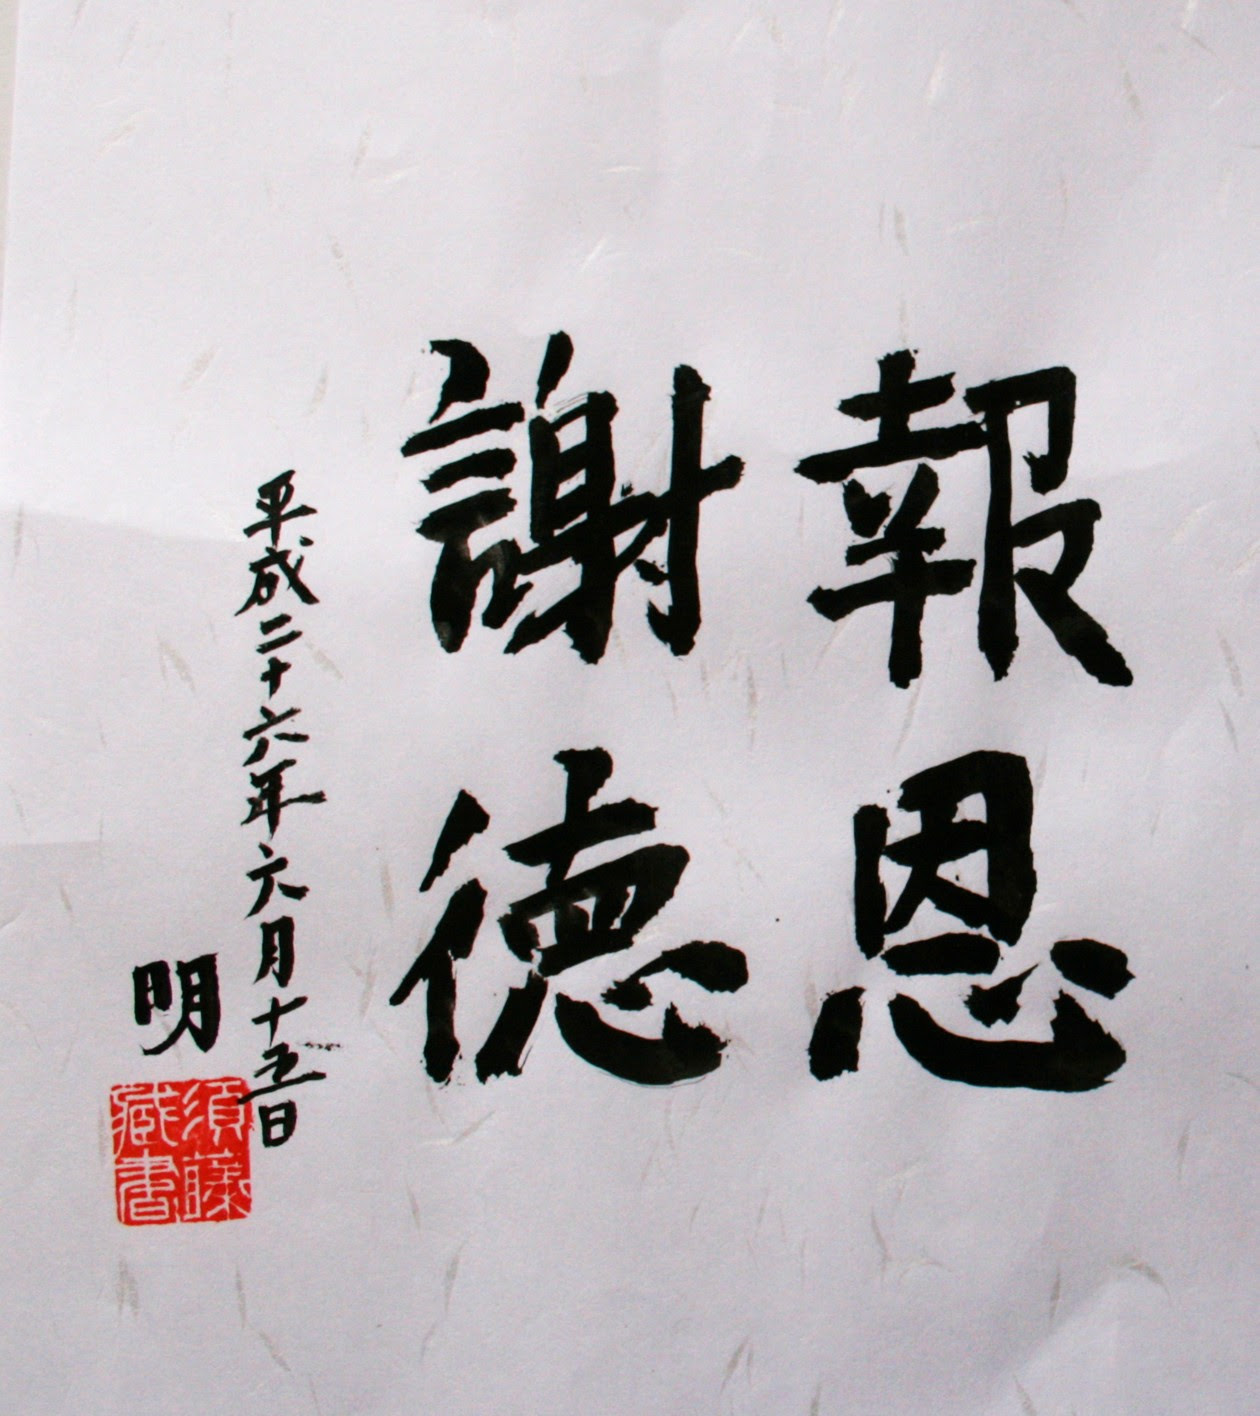 報恩
謝徳
平成二十六年六月十五日
明
須藤
蔵書